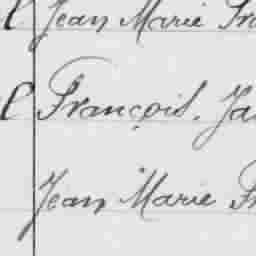 Jean Marie
François, Ja
Jean Marie